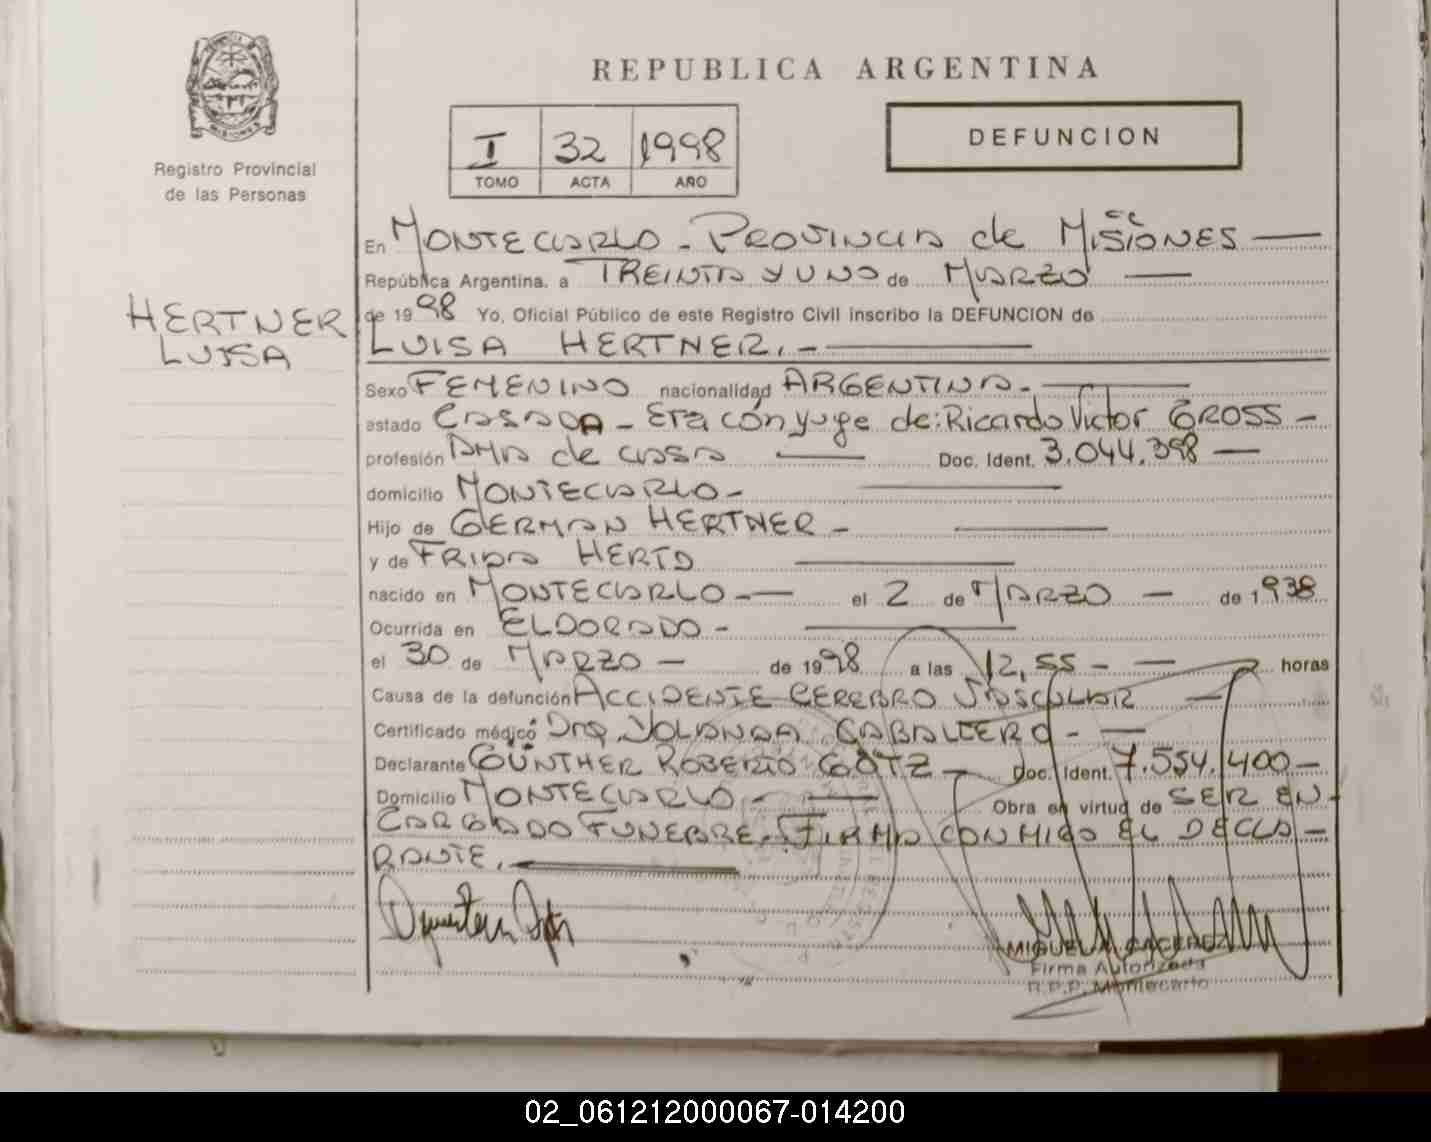 REPUBLICA ARGENTINA
I 32 1998
TOMO ACTA AÑO
DEFUNCION
Registro Provincial
de las Personas
HERTNER
LUISA
En MONTECARLO - PROVINCIA de MISIONES
República Argentina, a TREINTA Y UNO de MARZO
de 1998 Yo, Oficial Público de este Registro Civil inscribo la DEFUNCION de
LUISA HERTNER.-
Sexo FEMENINO nacionalidad ARGENTINA-
estado CASADA - Era cónyuge de: Ricardo Victor GROSS -
profesión AMA de CASA Doc. Ident. 3.044.398
domicilio MONTECARLO-
Hijo de GERMAN HERTNER -
y de FRIDA HERTA
nacido en MONTECARLO - el 2 de MARZO - de 1938
Ocurrida en ELDORADO -
el 30 de MARZO - de 1998 a las 12,55 - horas
Causa de la defunción ACCIDENTE CEREBRO VASCULAR
Certificado médico Dra. YOLANDA CABALLERO -
Declarante GÜNTHER ROBERTO GÖTZ - Doc. Ident. 7.554.400-
Domicilio MONTECARLO - Obra en virtud de SER EN-
CARGADO FUNEBRE. FIRMA CONMIGO EL DECLA-
RANTE.
MIGUEL A.
Firma Autorizada
R.P.P. Montecarlo
02_061212000067-014200